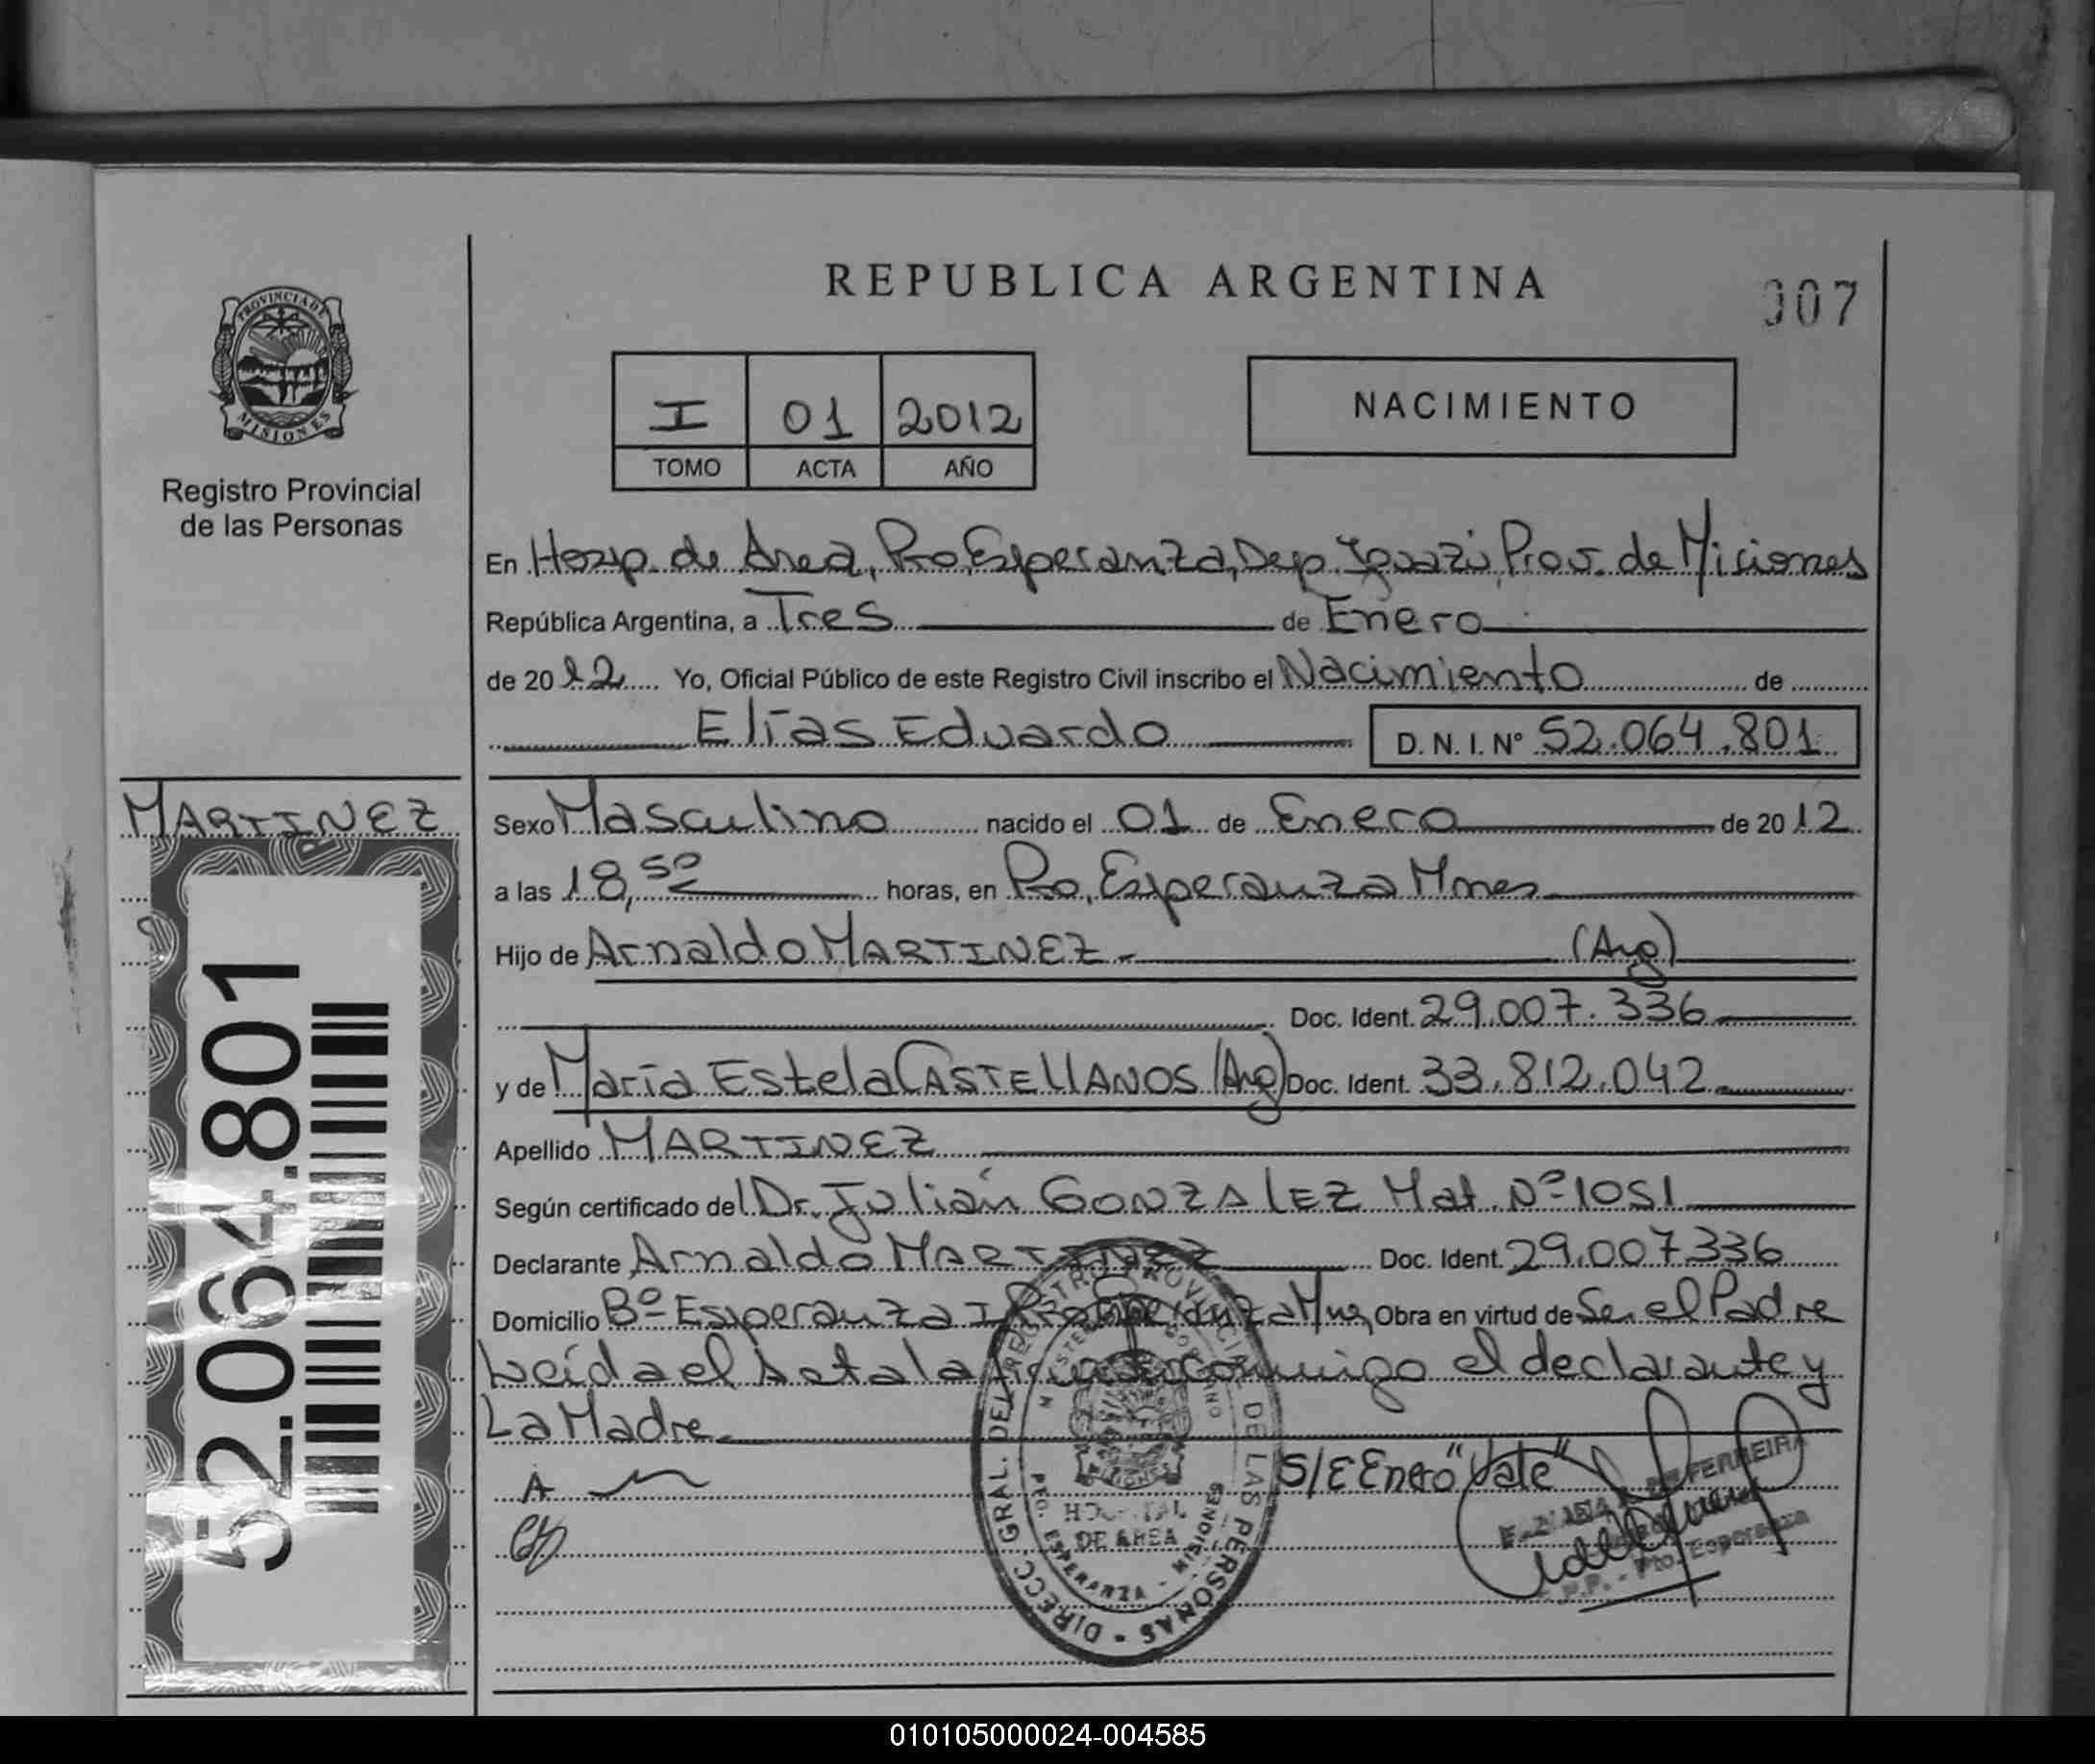 REPUBLICA ARGENTINA
007
PROVINCIA DE
MISIONES
Registro Provincial
de las Personas
I 01 2012
TOMO ACTA AÑO
NACIMIENTO
En Hosp. de Area, Pto. Esperanza, Dep. Iguazú, Prov. de Miciones
República Argentina, a Tres de Enero
de 2012 Yo, Oficial Público de este Registro Civil inscribo el Nacimiento de
Elías Eduardo D.N.I. Nº 52.064.801
MARTINEZ
Sexo Masculino nacido el 01 de Enero de 2012
a las 18,50 horas, en Pto. Esperanza Mnes
Hijo de Arnaldo MARTINEZ.- (Arg)
Doc. Ident. 29.007.336
y de María Estela CASTELLANOS (Arg) Doc. Ident. 33.812.042
Apellido MARTINEZ
Según certificado del Dr. Julián GONZALEZ Mat. Nº 1051
Declarante Arnaldo MARTINEZ Doc. Ident. 29.007.336
Domicilio Bº Esperanza I Pto. Esperanza Mnes Obra en virtud de Ser el Padre
Leída el Acta la firman conmigo el declarante y
La Madre.
S/E Enero "Vale"
52.064.801
DIRECC. GRAL. DEL REGISTRO PROVINCIAL DE LAS PERSONAS
HOSPITAL
DE AREA
PTO. ESPERANZA - MISIONES
FERREIRA
Pto. Esperanza
010105000024-004585